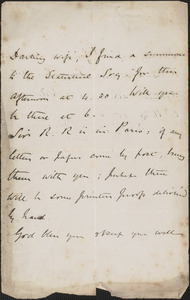 Darling wife, I find a summons
to the Executive Soc. for this
afternoon at 4.20. Will you
be there at 6.
Sir R. R is in Paris; if any
letters or papers come by post, bring
them with you; perhaps there
will be some printers proofs delivered
by hand
God bless you & keep you well